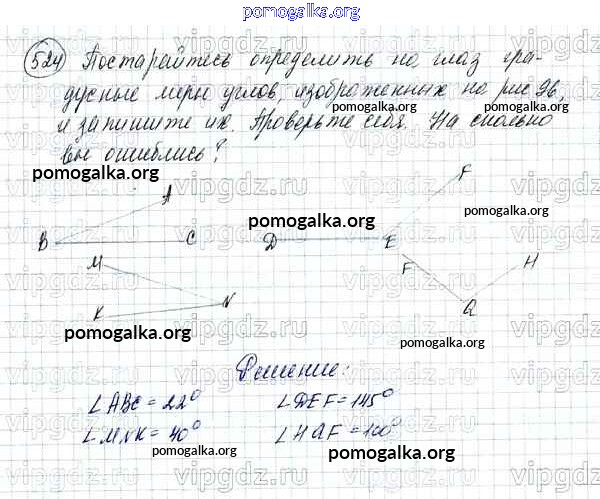 pomogalka.org
524 Постарайтесь определить на глаз гра-
дусные меры углов, изображенных на рис 96,
pomogalka.org
и запишите их. Проверьте себя. На сколько
вы ошиблись?
pomogalka.org
A
F
pomogalka.org
pomogalka.org
B C D E
M F H
K N Q
pomogalka.org
pomogalka.org
Решение:
∠ABC = 22° ∠DEF = 145°
∠MNK = 40° ∠HQF = 100°
pomogalka.org
pomogalka.org
vipgdz.ru